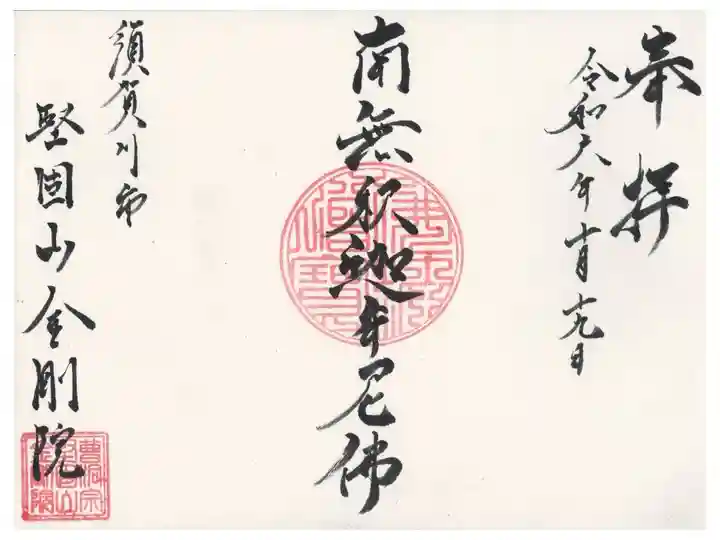 奉拝
令和六年十月十九日
南無釈迦牟尼佛
須賀川市
堅固山金剛院